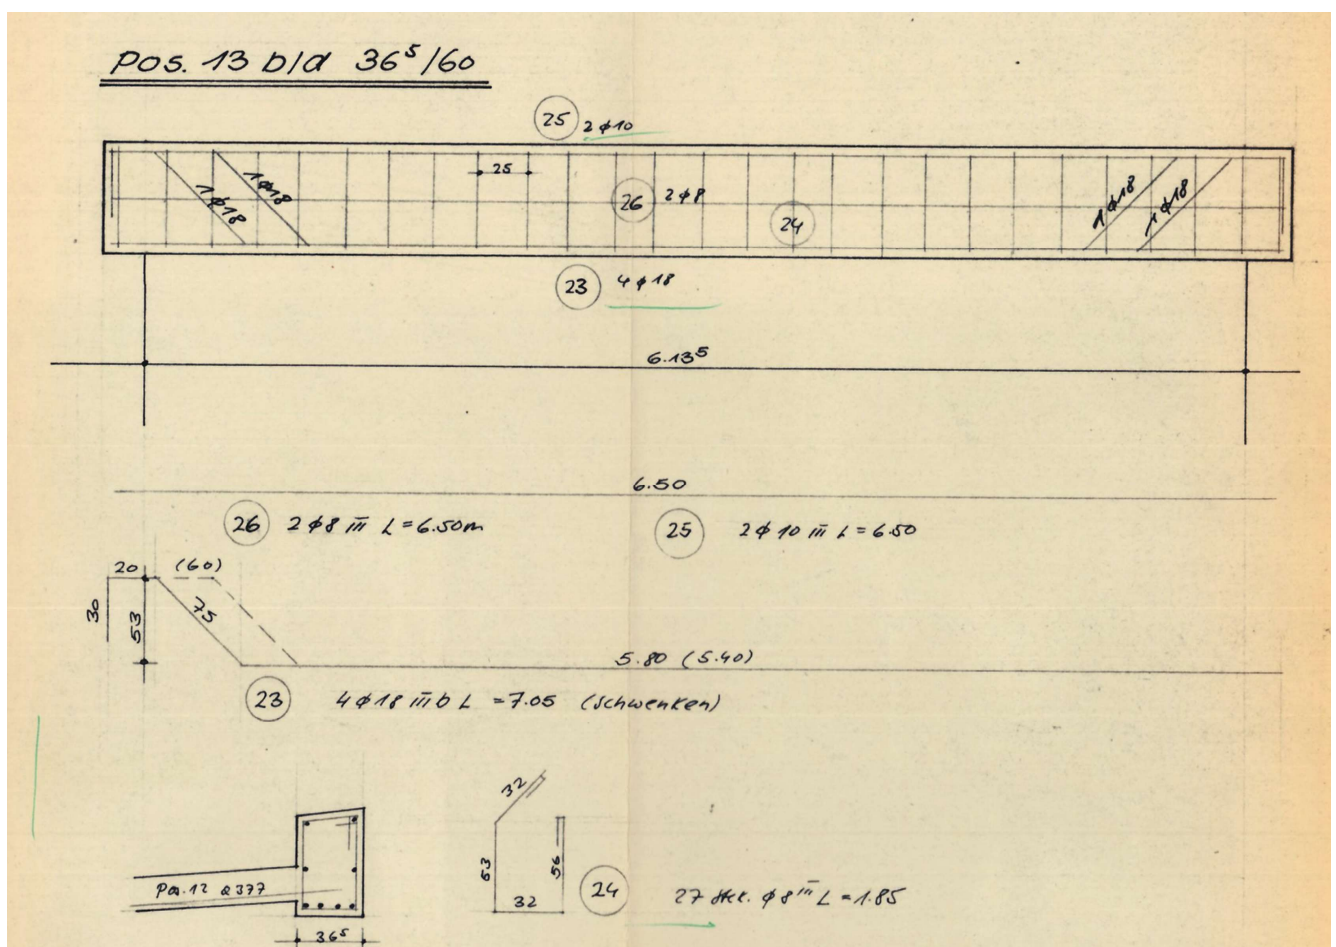 Pos. 13 b/d 36⁵/60
25 2 ϕ 10
1 ϕ 18 1 ϕ 18 25 26 2 ϕ 8 24 1 ϕ 18 1 ϕ 18
23 4 ϕ 18
6.13⁵
6.50
26 2 ϕ 8 III L = 6.50m 25 2 ϕ 10 III L = 6.50
20 (60)
30 53 75
5.80 (5.40)
23 4 ϕ 18 III b L = 7.05 (schwenken)
32
Pos. 12 Q 377 53 56 24 27 Stck. ϕ 8 III L = 1.85
32
36⁵